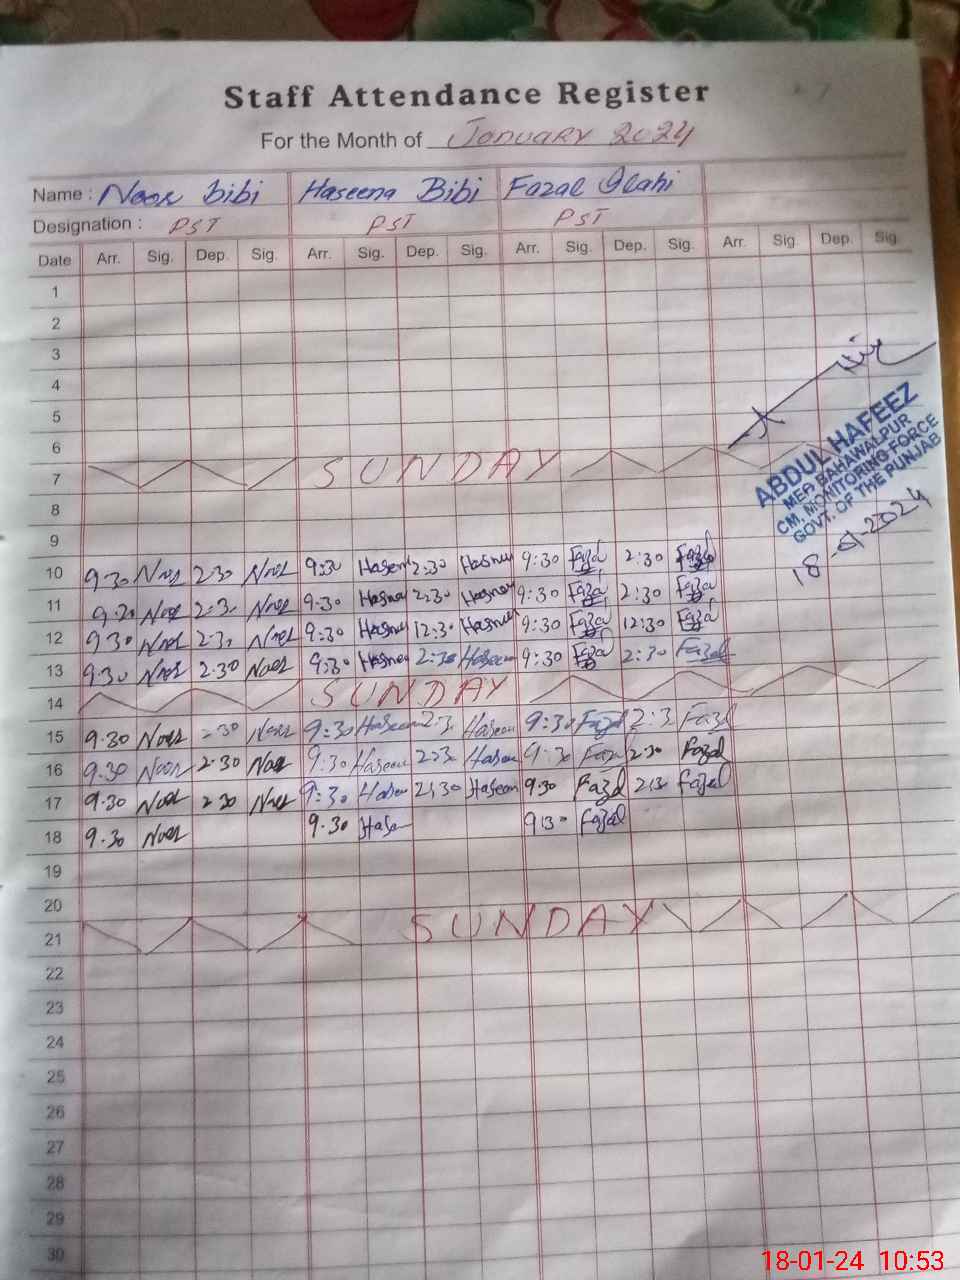 Staff Attendance Register
For the Month of January 2024
Name : Noor bibi Haseena Bibi Fazal Elahi
Designation : PST PST PST
Date Arr. Sig. Dep. Sig. Arr. Sig. Dep. Sig. Arr. Sig. Dep. Sig. Arr. Sig. Dep. Sig.
1
2
3
4
5
6
7 SUNDAY
ABDUL HAFEEZ
MEA BAHAWALPUR
CM. MONITORING FORCE
GOVT. OF THE PUNJAB
18-01-2024
8
9
10 9:30 Noor 2:30 Noor 9:30 2:30 9:30 Fazal 2:30 Fazal
11 9:30 Noor 2:3. Noor 9:30 2:30 9:30 Fazal 2:30 Fazal
12 9:30 Noor 2:3. Noor 9:30 12:30 9:30 Fazal 12:30 Fazal
13 9:30 Noor 2:30 Noor 9:30 2:30 Haseen 9:30 Fazal 2:30 Fazal
14 SUNDAY
15 9.30 Noor 2:30 Noor 9:30 Haseen 2:3. Haseen 9:30 Fazal 2:3. Fazal
16 9.30 Noor 2:30 Noor 9:30 Haseen 2:3. Haseen 9:30 Fazal 2:30 Fazal
17 9.30 Noor 2:30 Noor 9:30 Haseen 2:30 Haseen 9:30 Fazal 2:30 Fazal
18 9.30 Noor 9.30 9:30 Fazal
19
20
21 SUNDAY
22
23
24
25
26
27
28
29
30
18-01-24 10:53